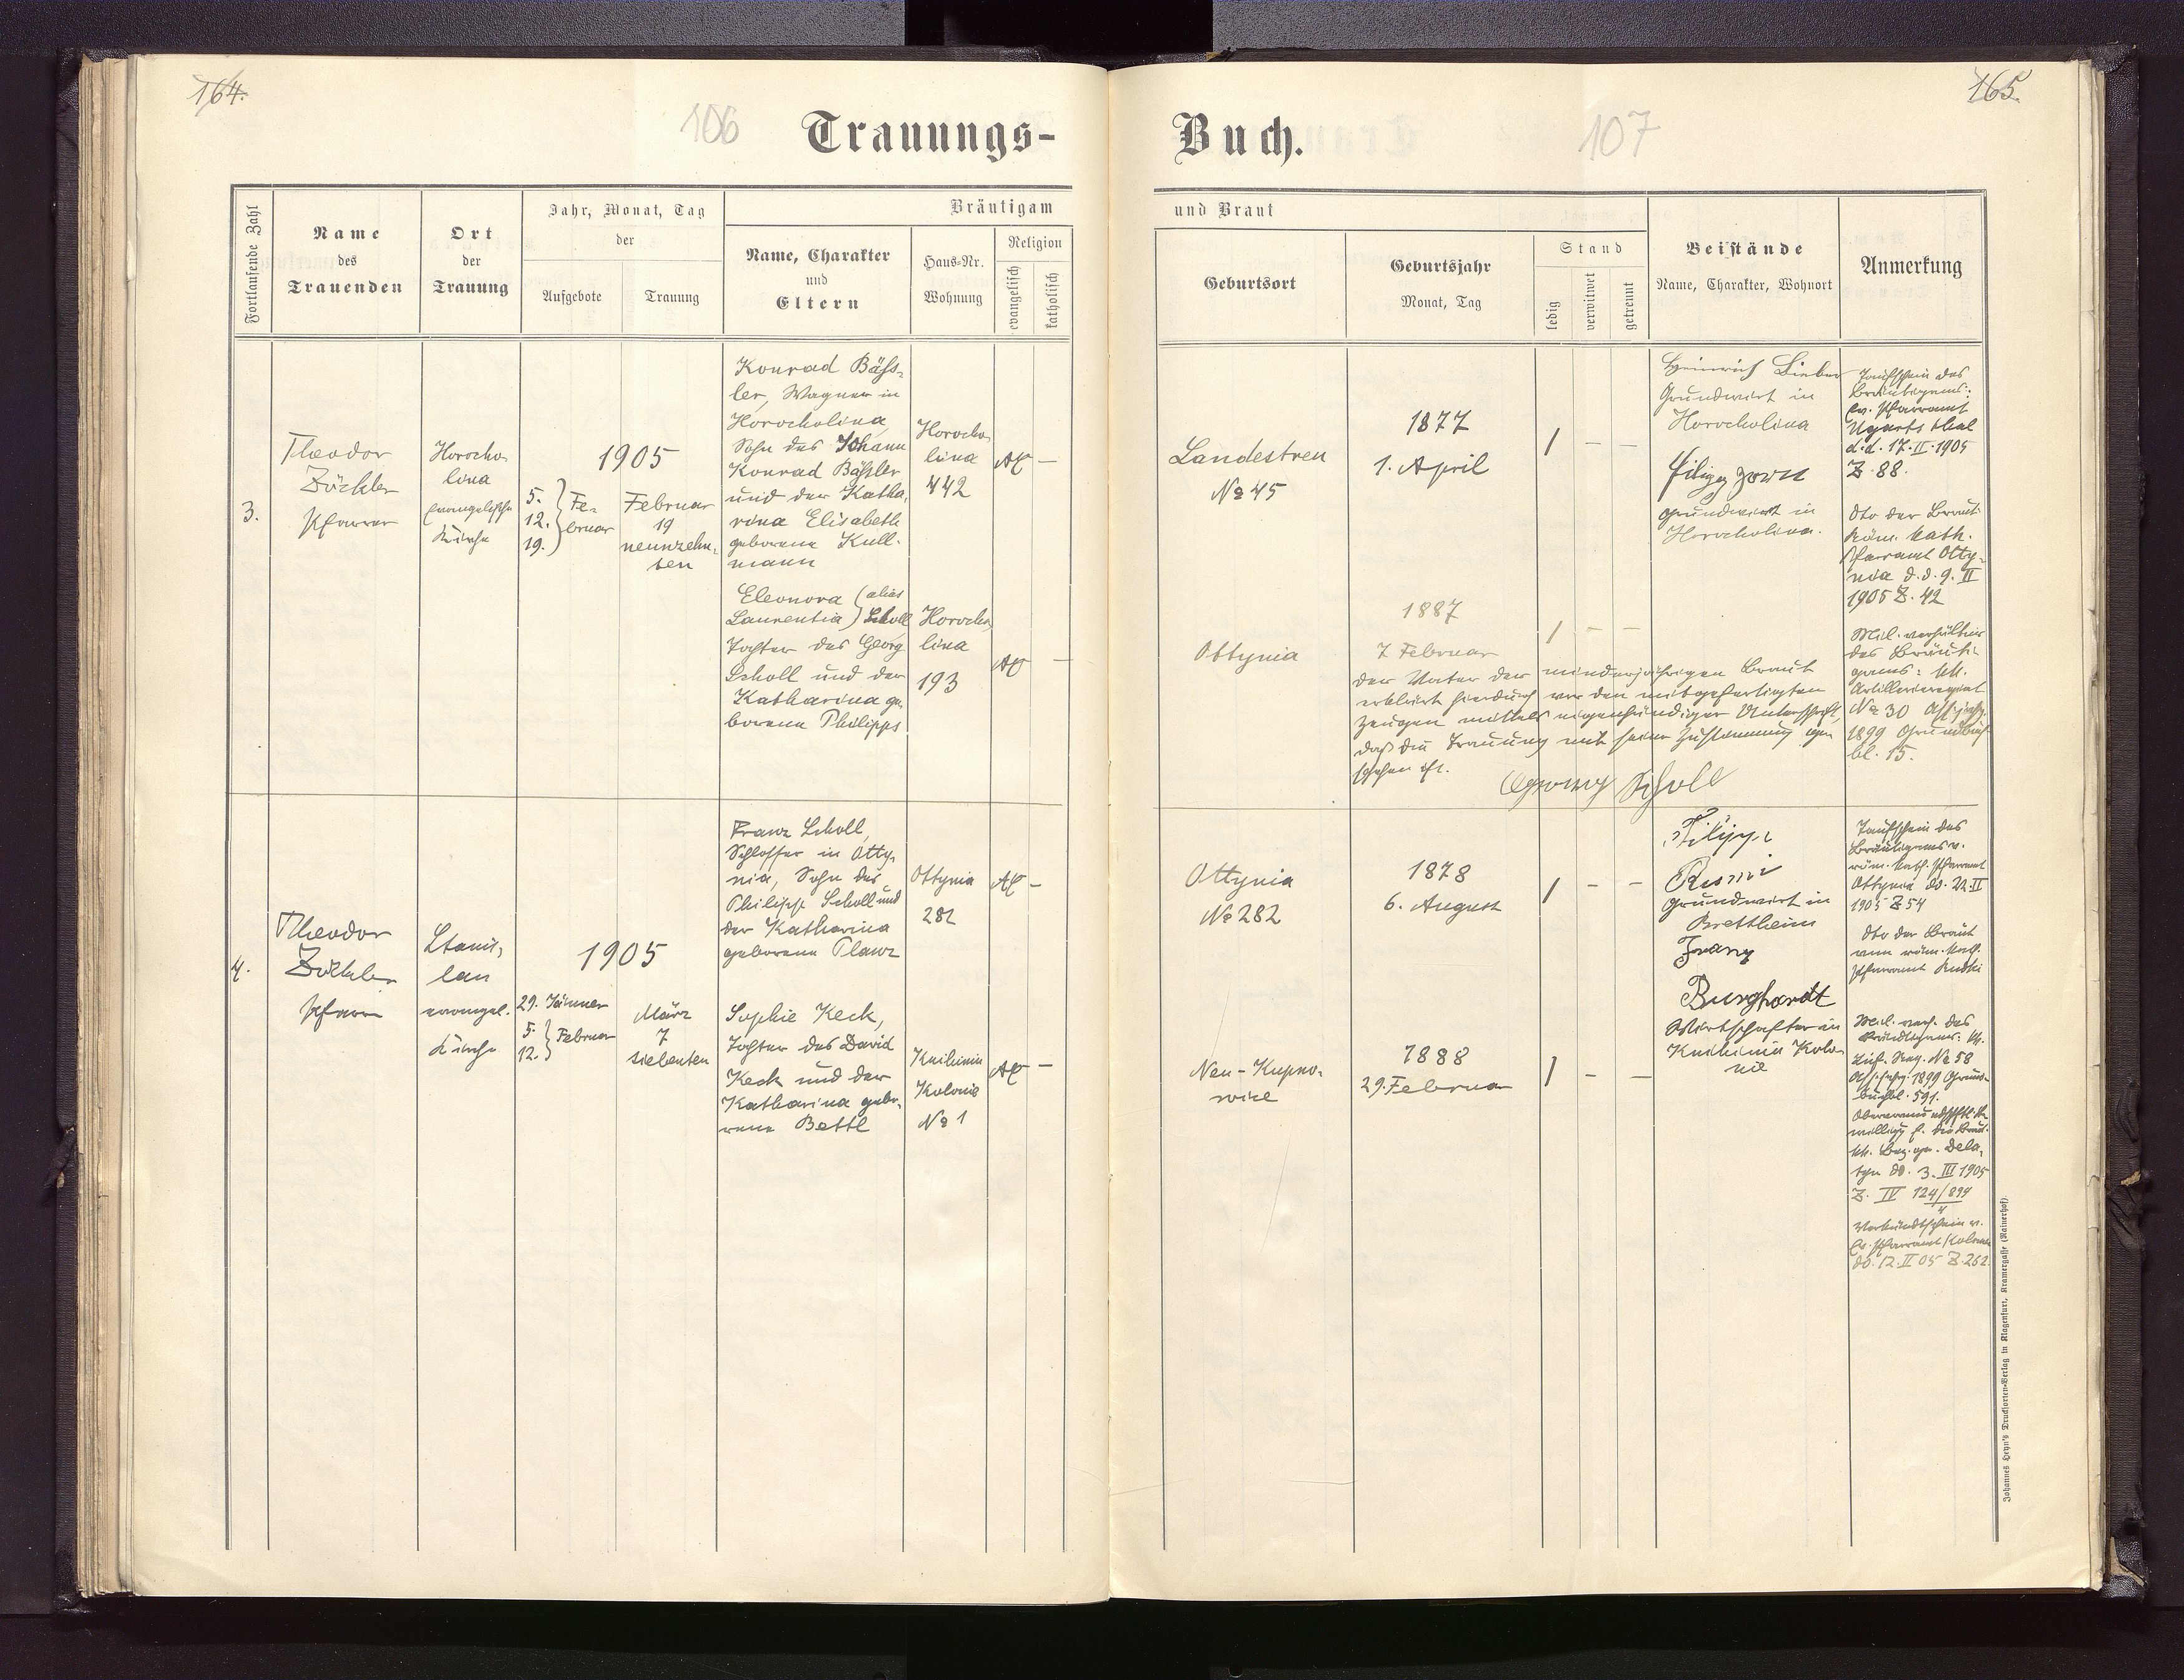 164.
106
Trauungs-
Fortlaufende Zahl
Name
des
Trauenden
Ort
der
Trauung
Jahr, Monat, Tag
der
Aufgebote
Trauung
Bräutigam
Name, Charakter
und
Eltern
Haus-Nr.
Wohnung
Religion
evangelisch
katholisch
3.
Theodor
Zöckler
Pfarrer
Horocho
lina
evangelische
Kirche
1905
5.
12.
19.
Fe-
bruar
Februar
19
neunzehn-
ten
Konrad Bäss-
ler, Wagner in
Horocholina,
Sohn des Johann
Konrad Bässler
und der Katha-
rina Elisabeth
geborene Kull-
mann
Horocho
lina
442
AC —
Eleonora (alias
Laurentia) Scholl
Tochter des Georg
Scholl und der
Katharina ge-
borene Philipps
Horocho
lina
193
AC —
4.
Theodor
Zöckler
Pfarrer
Stanis-
lau
evangel.
Kirche
1905
29. Jänner
5.
12.
Februar
März
7
siebenten
Franz Scholl,
Schlosser in Otty-
nia, Sohn des
Philipp Scholl und
der Katharina
geborene Planz
Ottynia
282
AC –
Sophie Keck,
Tochter des David
Keck und der
Katharina gebo-
rene Bettl
Knihinin
Kolonie
No 1
AC —
165.
Buch.
107
und Braut
Geburtsort
Geburtsjahr
Monat, Tag
Stand
ledig
verwitwet
getrennt
Beistände
Name, Charakter, Wohnort
Anmerkung
Landestreu
No 45
1877
1. April
1 – –
Heinrich Lieber
Grundwirt in
Horocholina
Grundwirt in
Horocholina.
Taufschein des
Bräutigams:
Ev. Pfarramt
Ugartsthal
d.d. 17.II.1905
Z. 88.
dto der Braut
Röm. kath.
Pfarramt Otty-
nia d.d. 9. II
1905 Z. 42
Ottynia
1887
7 Februar
1 – –
Der Vater der minderjährigen Braut
erklärt hierdurch vor den mitgefertigten
Zeugen mittels eigenhändiger Unterschrift,
daß die Trauung mit seiner Zustimmung ge-
schehen ist.
Georg Scholl
Mil. verhältnis
des Bräuti-
gams: kk.
Artillerieregiment
No 30 Assentjahr
1899 Grundbuch
bl. 15.
Ottynia
No 282
1878
6. August
1 – –
Filipp
Grundwirt in
Brettheim
Franz
Burghardt
Wirtschafter in
Knihinin Kolo-
nie
Taufschein des
Bräutigams v.
röm. kath. Pfarramt
Ottynia do. 22.II
1905 Z 54
dto der Braut
vom röm. kath.
Pfarramt Rudki
Neu-Kupno-
wice
1888
29. Februar
1 – —
Mil. verh. des
Bräutigams: kk.
Inf. Reg. No 58
Assentjahr 1899 Grund-
buchbl. 591.
kk. Bez. ger. Dela-
tyn do. 3. III 1905
Z. IV 124/899
4
Verkündschein v.
Ev. Pfarramt Kolomea
do. 12.II 05 Z. 262.
Johannes Heyn's Drucksorten-Verlag in Klagenfurt, Kramergasse (Rainerhof)